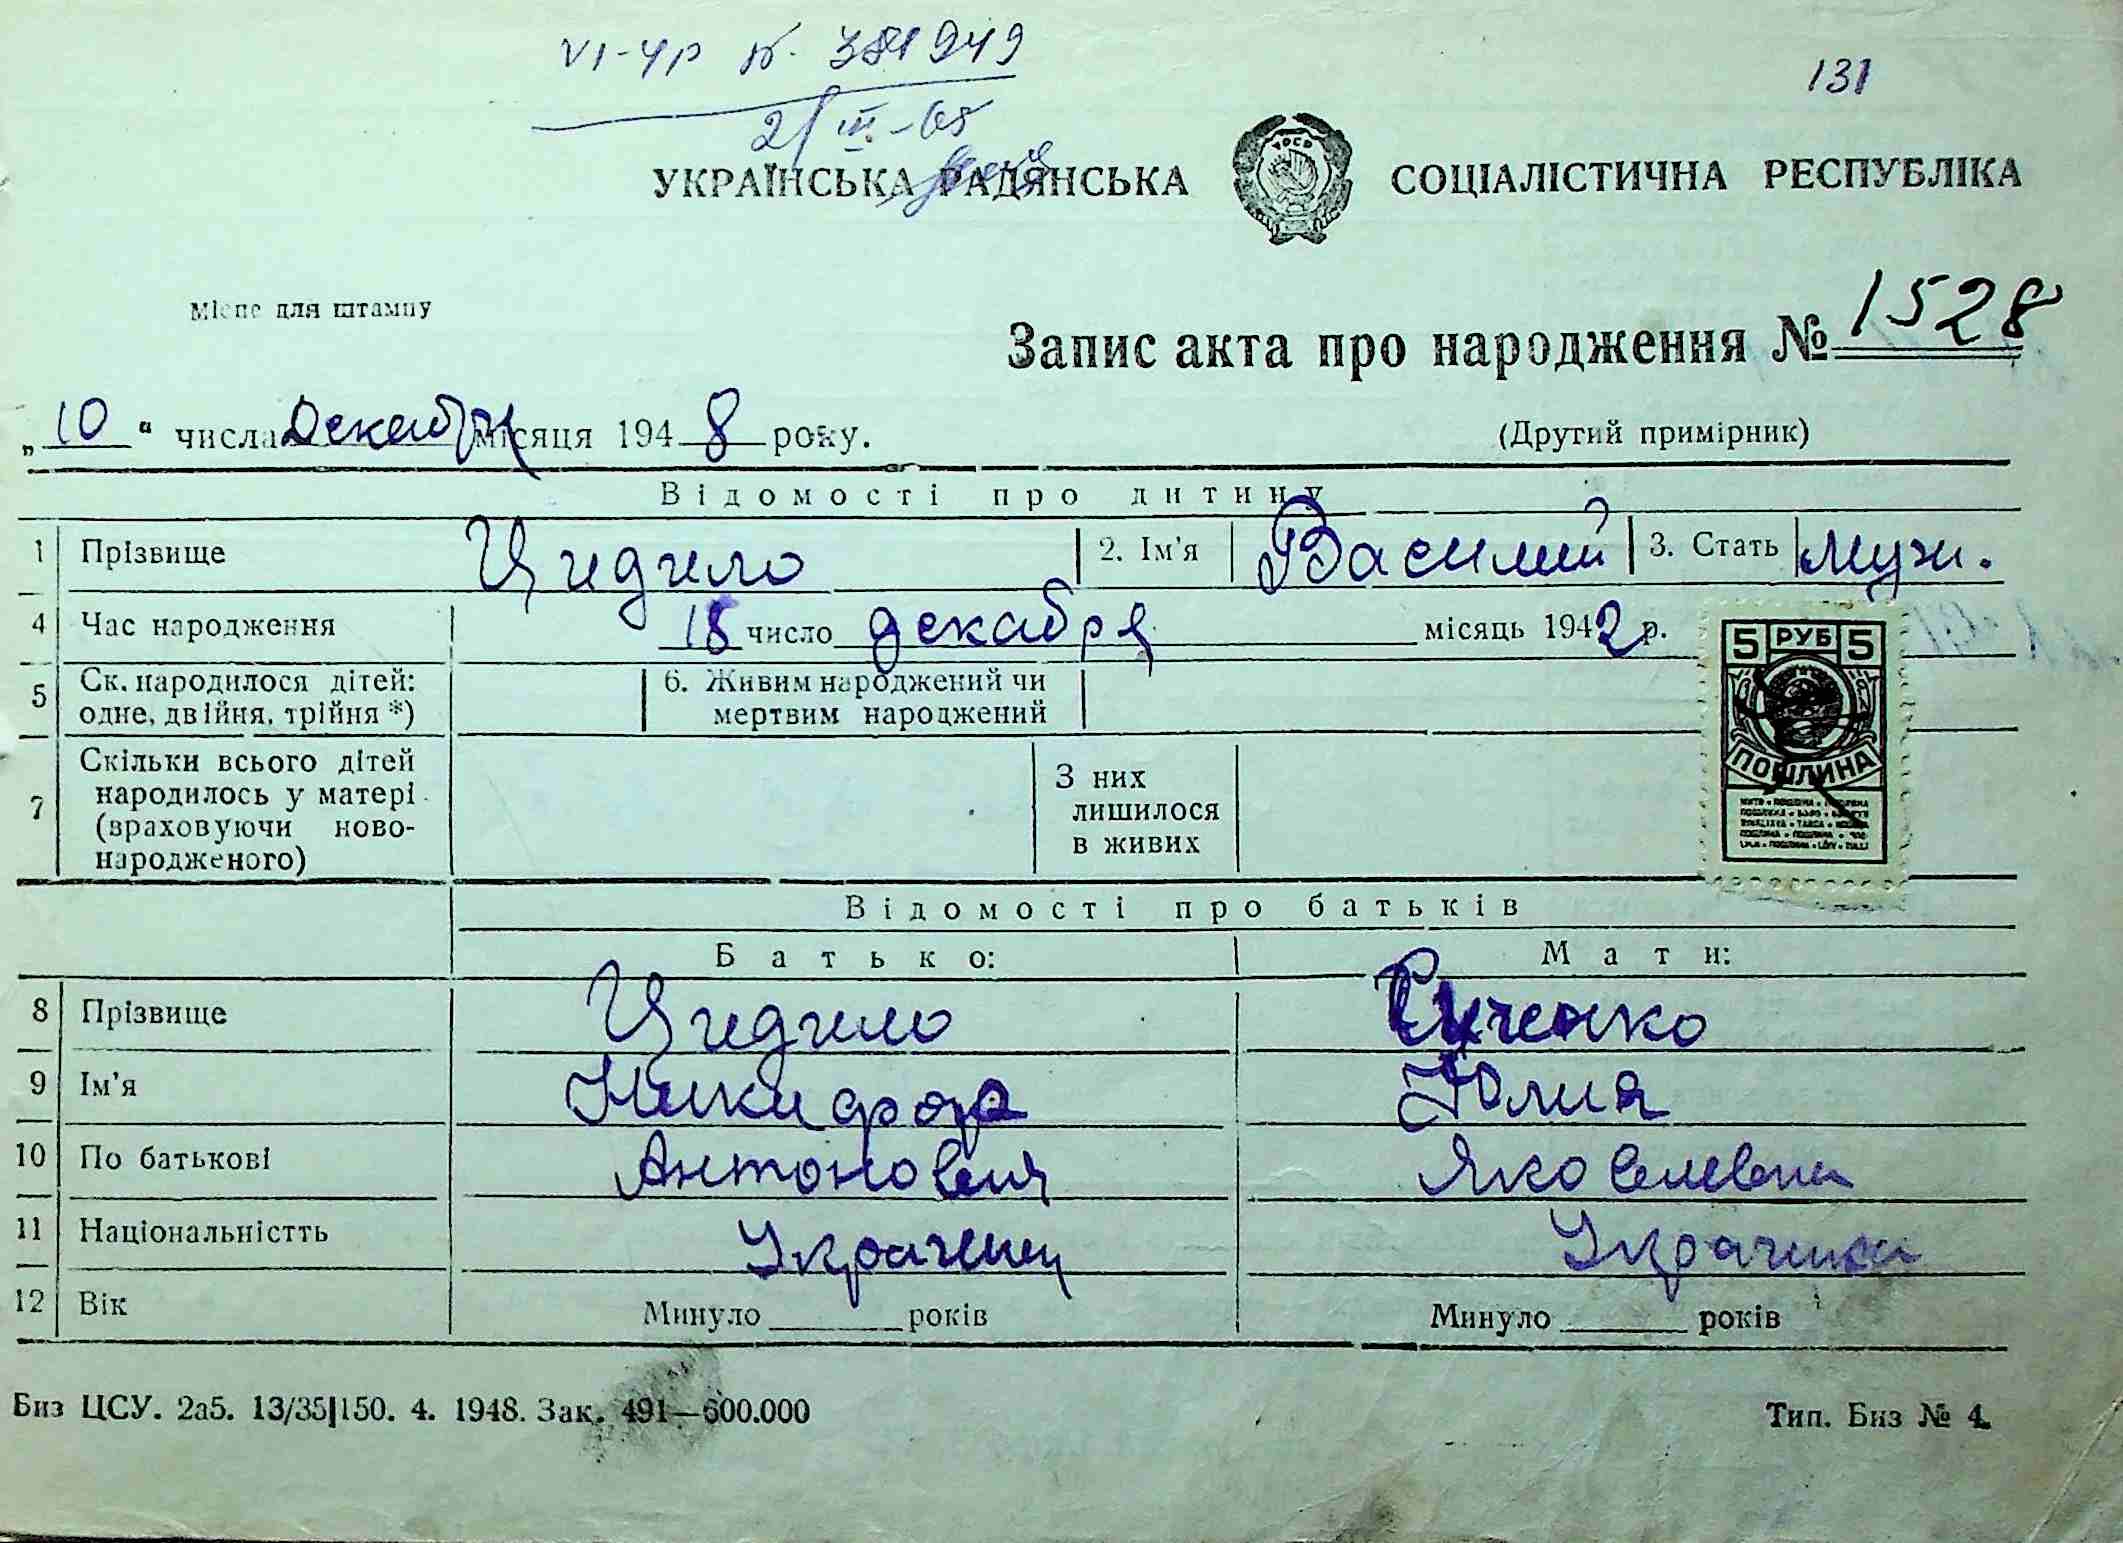 VI-УР №. 381949
131
21/III-65
УКРАЇНСЬКА РАДЯНСЬКА СОЦІАЛІСТИЧНА РЕСПУБЛІКА
Місце для штампу
Запис акта про народження № 1528
„10“ числа Декабря місяця 1948 року.
(Другий примірник)
Відомості про дитину
1 Прізвище Цидило 2. Ім'я Василий 3. Стать муж.
4 Час народження 18 число декабря місяць 1942 р.
5 Ск. народилося дітей: одне, двійня, трійня *) 6. Живим народжений чи мертвим народжений
7 Скільки всього дітей народилось у матері (враховуючи ново-народженого) З них лишилося в живих
5 РУБ 5
ПОШЛИНА
Відомості про батьків
Батько: Мати:
8 Прізвище Цидило Сиченко
9 Ім'я Никифор Юлия
10 По батькові Антонович Яковлевна
11 Національністть Украинец Украинка
12 Вік Минуло років Минуло років
Биз ЦСУ. 2а5. 13/35|150. 4. 1948. Зак. 491—600.000 Тип. Биз № 4.